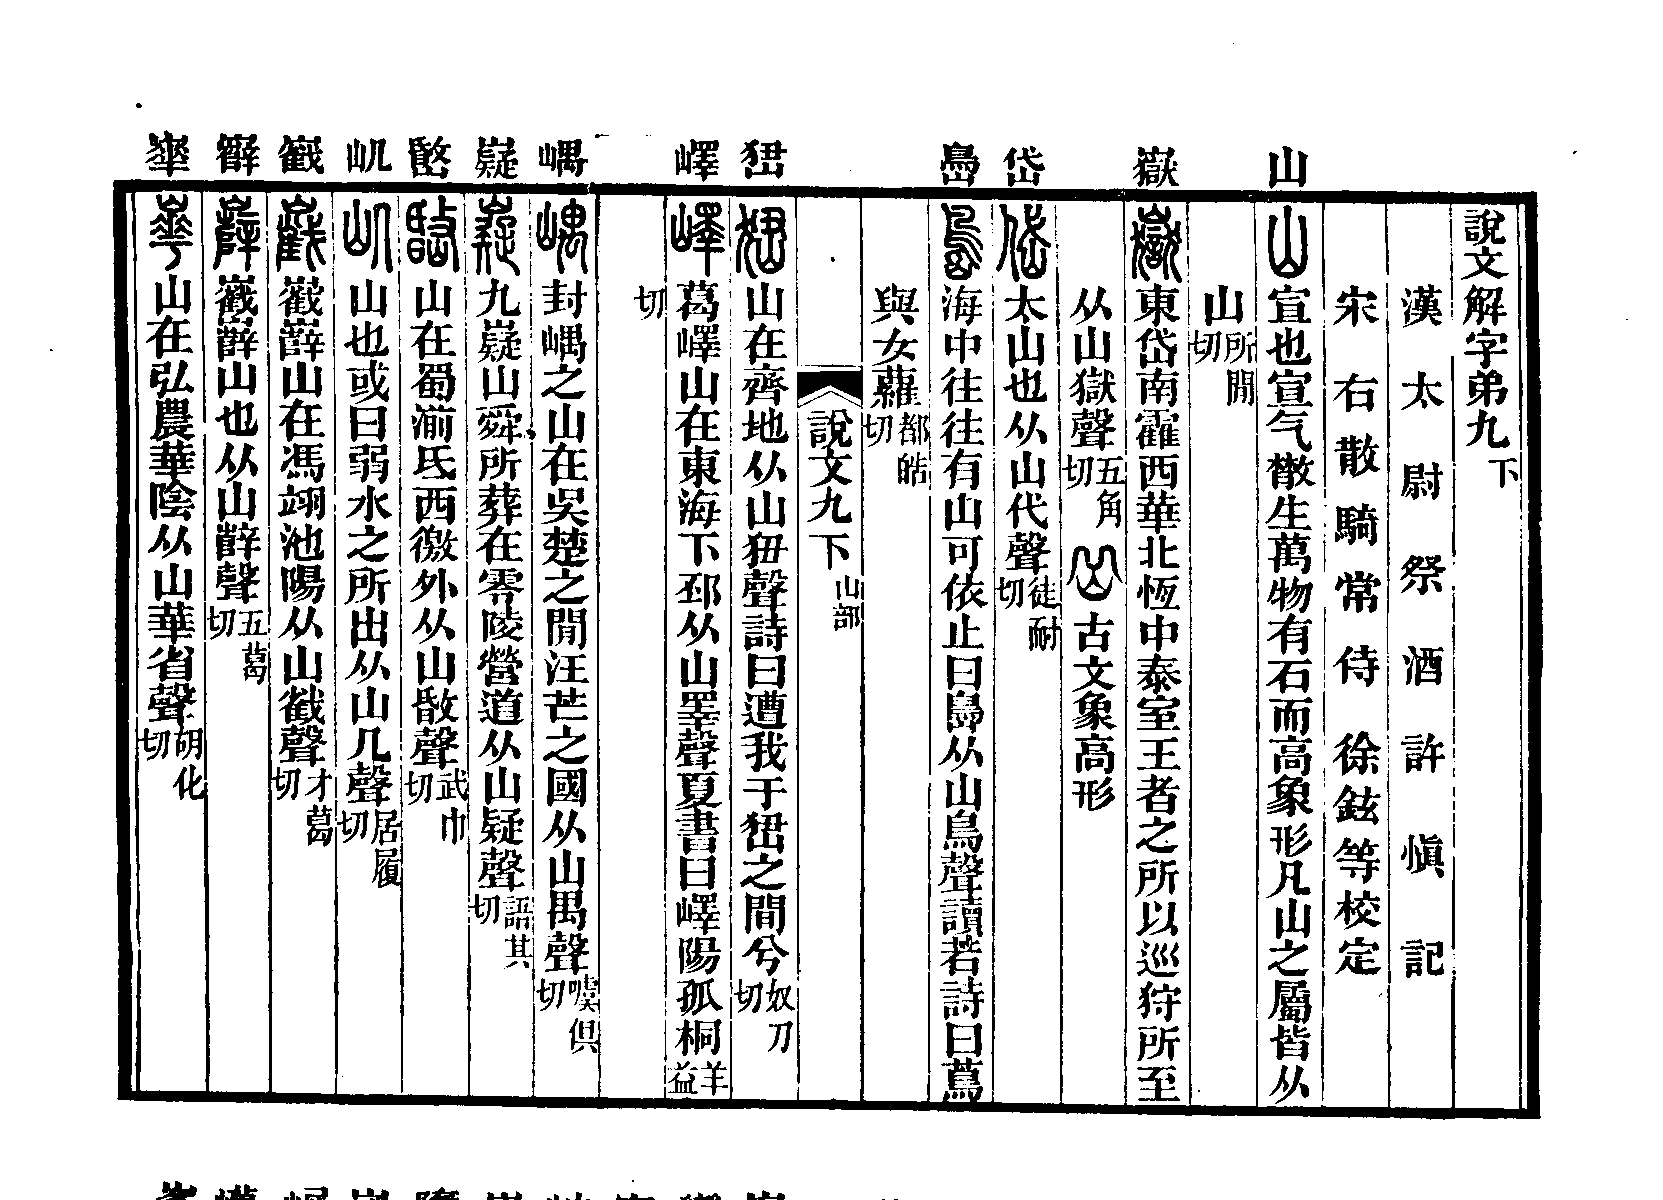 說文解字弟九下
漢太尉祭酒許慎記
宋右散騎常侍徐鉉等校定
山
山宣也宣气散生萬物有石而高象形凡山之屬皆从
山所閒切
嶽
嶽東岱南靃西華北恆中泰室王者之所以巡狩所至
从山獄聲五角切 古文象高形
岱
岱太山也从山代聲徒耐切
㠀
㠀海中往往有山可依止曰㠀从山鳥聲讀若詩曰蔦
與女蘿都皓切
說文九下 山部
峱
峱山在齊地从山狃聲詩曰遭我于峱之間兮奴刀切
嶧
嶧葛嶧山在東海下邳从山睪聲夏書曰嶧陽孤桐羊益
切
嵎
嵎封嵎之山在吳楚之閒汪芒之國从山禺聲噳俱切
嶷
嶷九嶷山舜所葬在零陵營道从山疑聲語其切
㟭
㟭山在蜀湔氐西徼外从山敃聲武巾切
屼
屼山也或曰弱水之所出从山几聲居履切
巀
巀巀嶭山在馮翊池陽从山截聲才葛切
嶭
嶭巀嶭山也从山辥聲五葛切
崋
崋山在弘農華陰从山華省聲胡化切